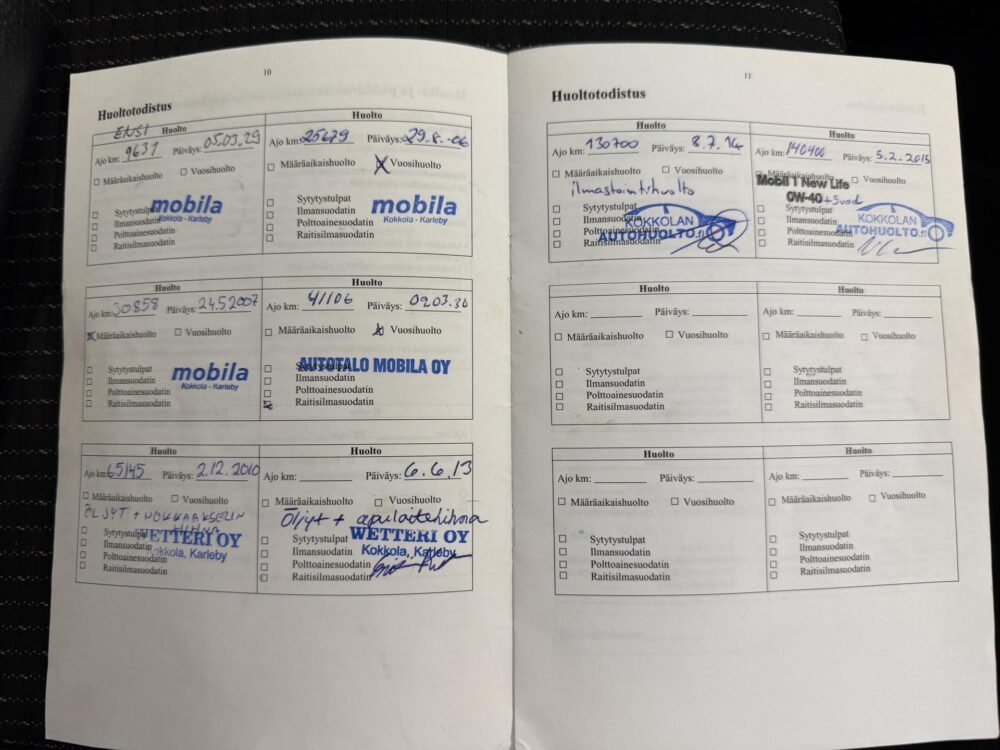 10
Huoltotodistus
ENSI Huolto
Ajo km: 9631 Päiväys: 05.03.29
☐ Määräaikaishuolto ☐ Vuosihuolto
mobila
Kokkola - Karleby
☐ Sytytystulpat
☐ Ilmansuodatin
☐ Polttoainesuodatin
☐ Raitisilmasuodatin
Huolto
Ajo km: 25679 Päiväys: 29.8.-06
☐ Määräaikaishuolto ☒ Vuosihuolto
mobila
Kokkola - Karleby
☐ Sytytystulpat
☐ Ilmansuodatin
☐ Polttoainesuodatin
☐ Raitisilmasuodatin
Huolto
Ajo km: 30858 Päiväys: 24.5.2007
☒ Määräaikaishuolto ☐ Vuosihuolto
mobila
Kokkola - Karleby
☐ Sytytystulpat
☐ Ilmansuodatin
☐ Polttoainesuodatin
☐ Raitisilmasuodatin
Huolto
Ajo km: 41106 Päiväys: 09.03.30
☐ Määräaikaishuolto ☒ Vuosihuolto
AUTOTALO MOBILA OY
☐ Sytytystulpat
☐ Ilmansuodatin
☐ Polttoainesuodatin
☒ Raitisilmasuodatin
Huolto
Ajo km: 65145 Päiväys: 2.12.2010
☐ Määräaikaishuolto ☐ Vuosihuolto
ÖLJYT + NOKKAAKSELIN
HIHNA
WETTERI OY
Kokkola, Karleby
☐ Sytytystulpat
☐ Ilmansuodatin
☐ Polttoainesuodatin
☐ Raitisilmasuodatin
Huolto
Ajo km: Päiväys: 6.6.13
☐ Määräaikaishuolto ☐ Vuosihuolto
Öljyt + apulaitehihna
WETTERI OY
Kokkola, Karleby
☐ Sytytystulpat
☐ Ilmansuodatin
☐ Polttoainesuodatin
☐ Raitisilmasuodatin
11
Huoltotodistus
Huolto
Ajo km: 130700 Päiväys: 8.7.14
☐ Määräaikaishuolto ☐ Vuosihuolto
ilmastointihuolto
KOKKOLAN
AUTOHUOLTO.fi
☐ Sytytystulpat
☐ Ilmansuodatin
☐ Polttoainesuodatin
☐ Raitisilmasuodatin
Huolto
Ajo km: 140400 Päiväys: 5.2.2015
☐ Määräaikaishuolto ☐ Vuosihuolto
Mobil 1 New Life
0W-40 + Suod
KOKKOLAN
AUTOHUOLTO.fi
☐ Sytytystulpat
☐ Ilmansuodatin
☐ Polttoainesuodatin
☐ Raitisilmasuodatin
Huolto
Ajo km: Päiväys:
☐ Määräaikaishuolto ☐ Vuosihuolto
☐ Sytytystulpat
☐ Ilmansuodatin
☐ Polttoainesuodatin
☐ Raitisilmasuodatin
Huolto
Ajo km: Päiväys:
☐ Määräaikaishuolto ☐ Vuosihuolto
☐ Sytytystulpat
☐ Ilmansuodatin
☐ Polttoainesuodatin
☐ Raitisilmasuodatin
Huolto
Ajo km: Päiväys:
☐ Määräaikaishuolto ☐ Vuosihuolto
☐ Sytytystulpat
☐ Ilmansuodatin
☐ Polttoainesuodatin
☐ Raitisilmasuodatin
Huolto
Ajo km: Päiväys:
☐ Määräaikaishuolto ☐ Vuosihuolto
☐ Sytytystulpat
☐ Ilmansuodatin
☐ Polttoainesuodatin
☐ Raitisilmasuodatin